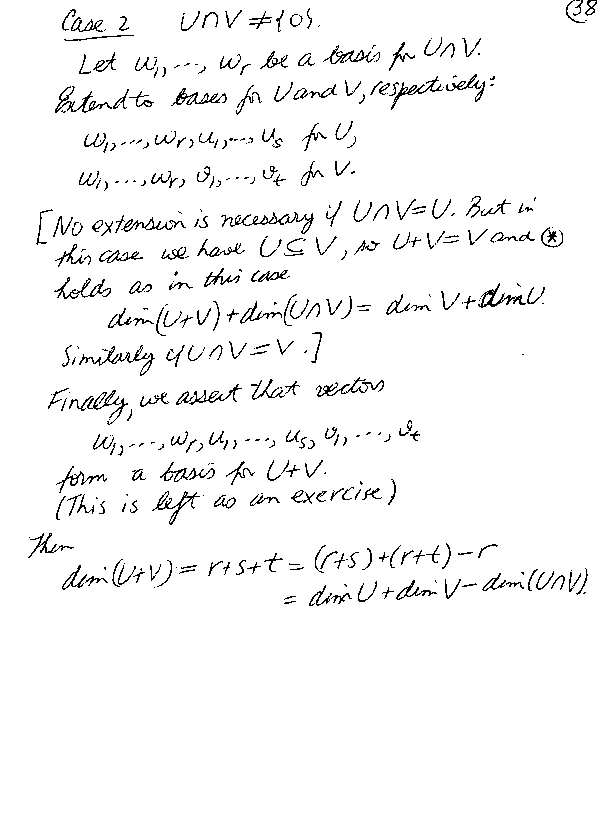 Case 2 U∩V ≠ {0}. 38
Let w₁, ..., wᵣ be a basis for U∩V.
Extend to bases for U and V, respectively:
w₁, ..., wᵣ, u₁, ..., uₛ for U,
w₁, ..., wᵣ, v₁, ..., vₜ for V.
[No extension is necessary if U∩V=U. But in
this case we have U⊆V, so U+V=V and ⊛
holds as in this case
dim(U+V)+dim(U∩V) = dim V+dim U.
Similarly if U∩V=V.]
Finally, we assert that vectors
w₁, ..., wᵣ, u₁, ..., uₛ, v₁, ..., vₜ
form a basis for U+V.
(This is left as an exercise)
Then
dim(U+V) = r+s+t = (r+s)+(r+t)-r
= dim U+dim V-dim(U∩V).